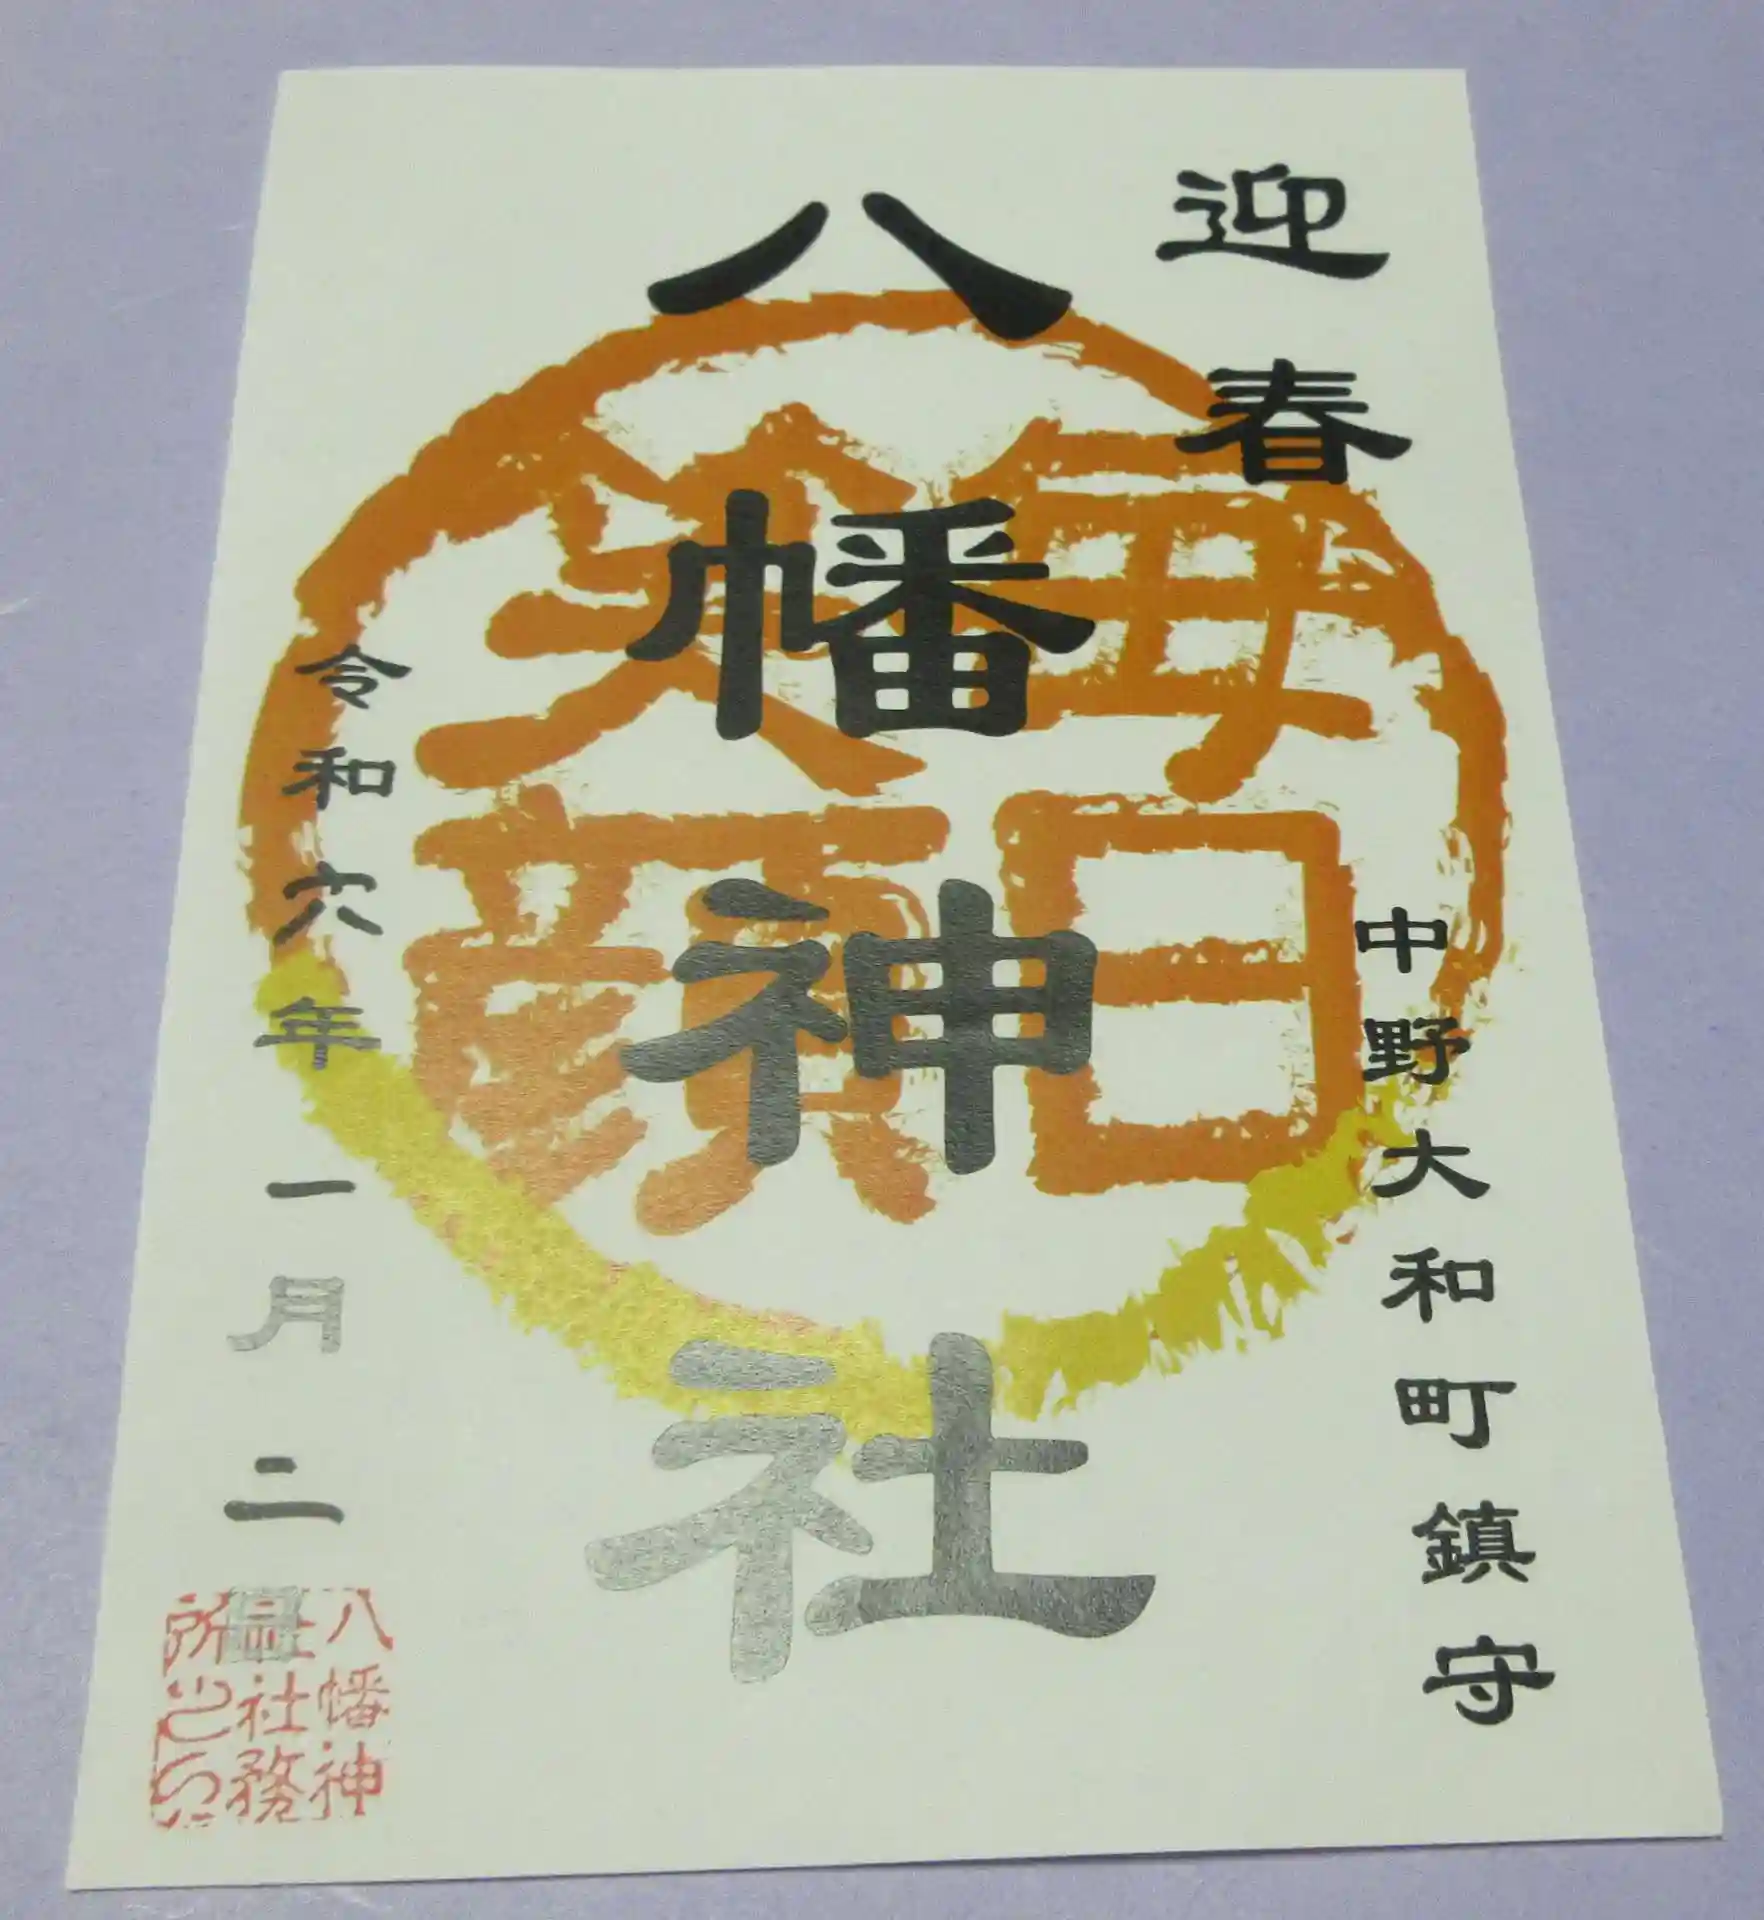 迎春
中野大和町鎮守
八幡神社
令和六年一月二日
八幡神
社社務
所之印